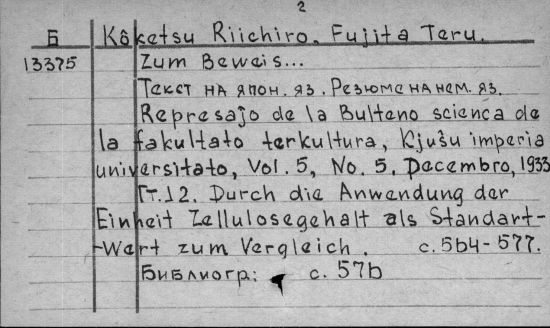 2
Б Kôketsu Riichiro, Fujita Teru.
13375 Zum Beweis...
Текст на япон. яз. Резюме на нем. яз.
Represaĵo de la Bulteno scienca de
la fakultato terkultura, Kjuŝu imperia
universitato, Vol. 5, No. 5, Decembro, 1933
[т.] 2. Durch die Anwendung der
Einheit Zellulosegehalt als Standart-
-Wert zum Vergleich. с. 564-577.
Библиогр: с. 576